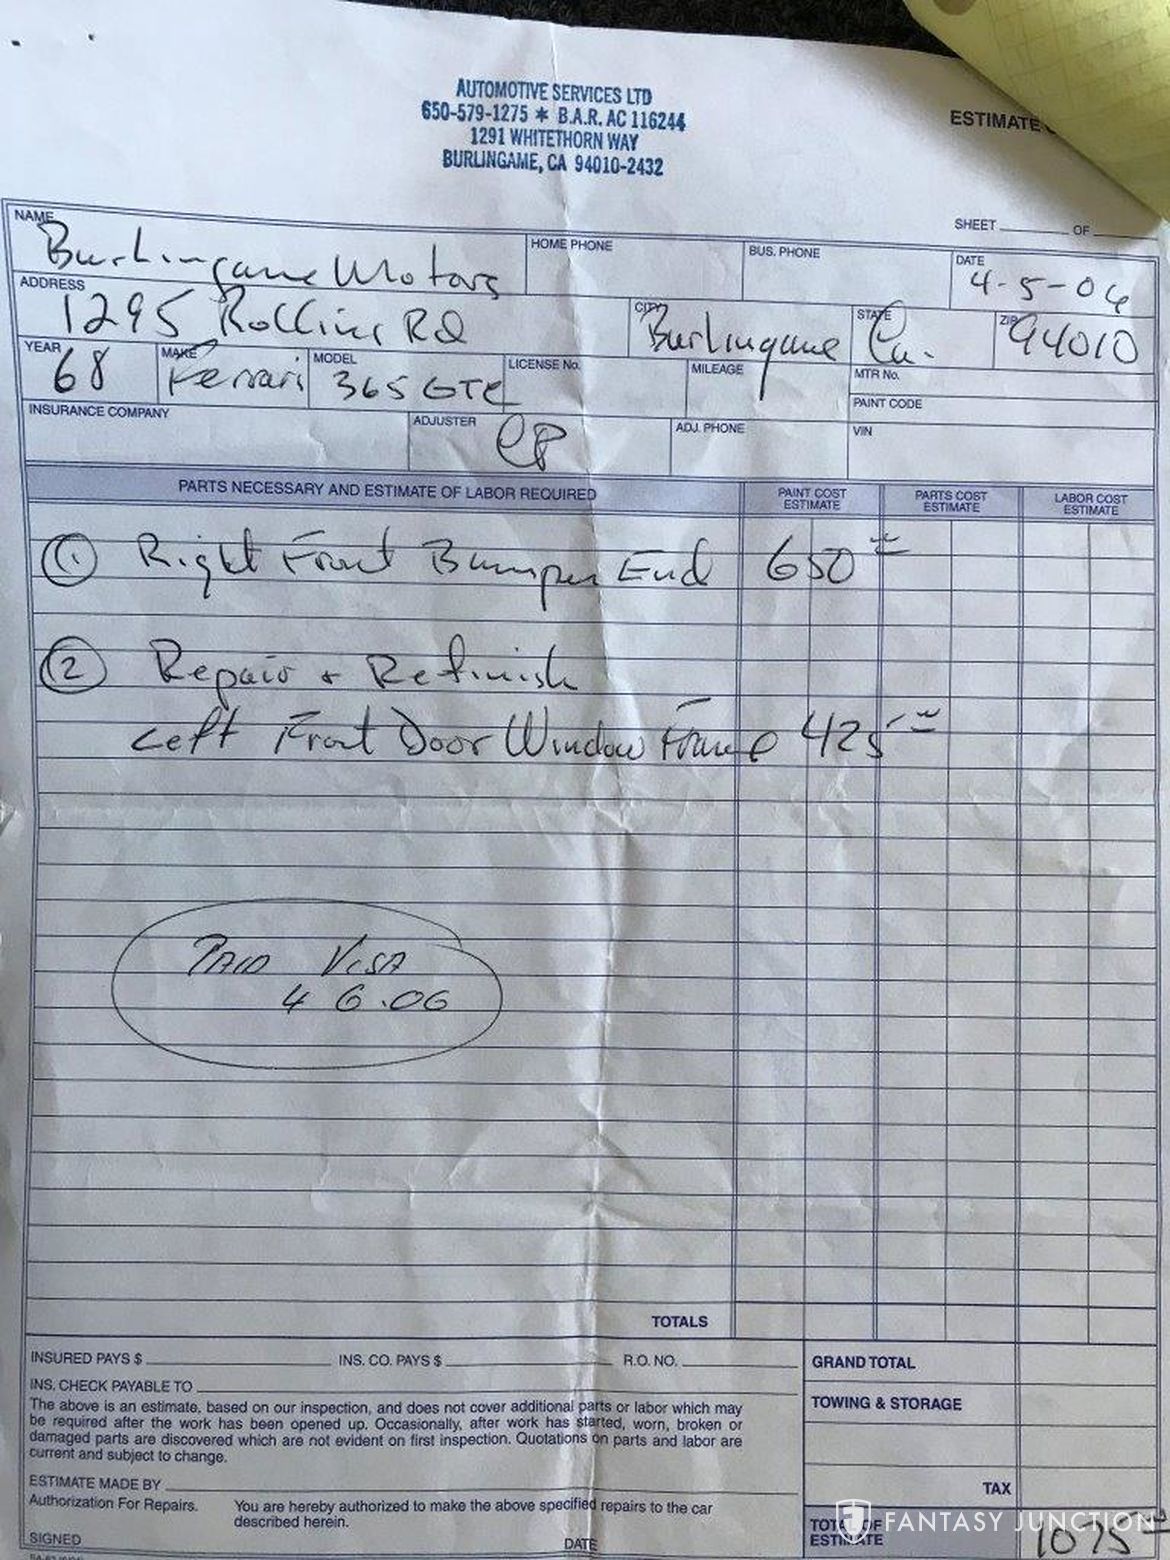 AUTOMOTIVE SERVICES LTD
650-579-1275 * B.A.R. AC 116244
1291 WHITETHORN WAY
BURLINGAME, CA 94010-2432
ESTIMATE
SHEET OF
NAME Burlingame Motors HOME PHONE BUS. PHONE DATE 4-5-06
ADDRESS 1295 Rollins Rd CITY Burlingame STATE Ca. ZIP 94010
YEAR 68 MAKE Ferrari MODEL 365 GTC LICENSE No. MILEAGE MTR No.
PAINT CODE
INSURANCE COMPANY ADJUSTER ADJ. PHONE VIN
PARTS NECESSARY AND ESTIMATE OF LABOR REQUIRED PAINT COST ESTIMATE PARTS COST ESTIMATE LABOR COST ESTIMATE
① Right Front Bumper End 650
② Repair + Refinish
Left Front Door Window Frame 425
PAID VISA
4 6.06
TOTALS
INSURED PAYS $ INS. CO. PAYS $ R.O. NO. GRAND TOTAL
INS. CHECK PAYABLE TO
TOWING & STORAGE
The above is an estimate, based on our inspection, and does not cover additional parts or labor which may
be required after the work has been opened up. Occasionally, after work has started, worn, broken or
damaged parts are discovered which are not evident on first inspection. Quotations on parts and labor are
current and subject to change.
ESTIMATE MADE BY TAX
Authorization For Repairs. You are hereby authorized to make the above specified repairs to the car
described herein.
TOTAL OF ESTIMATE 1075
FANTASY JUNCTION
SIGNED DATE